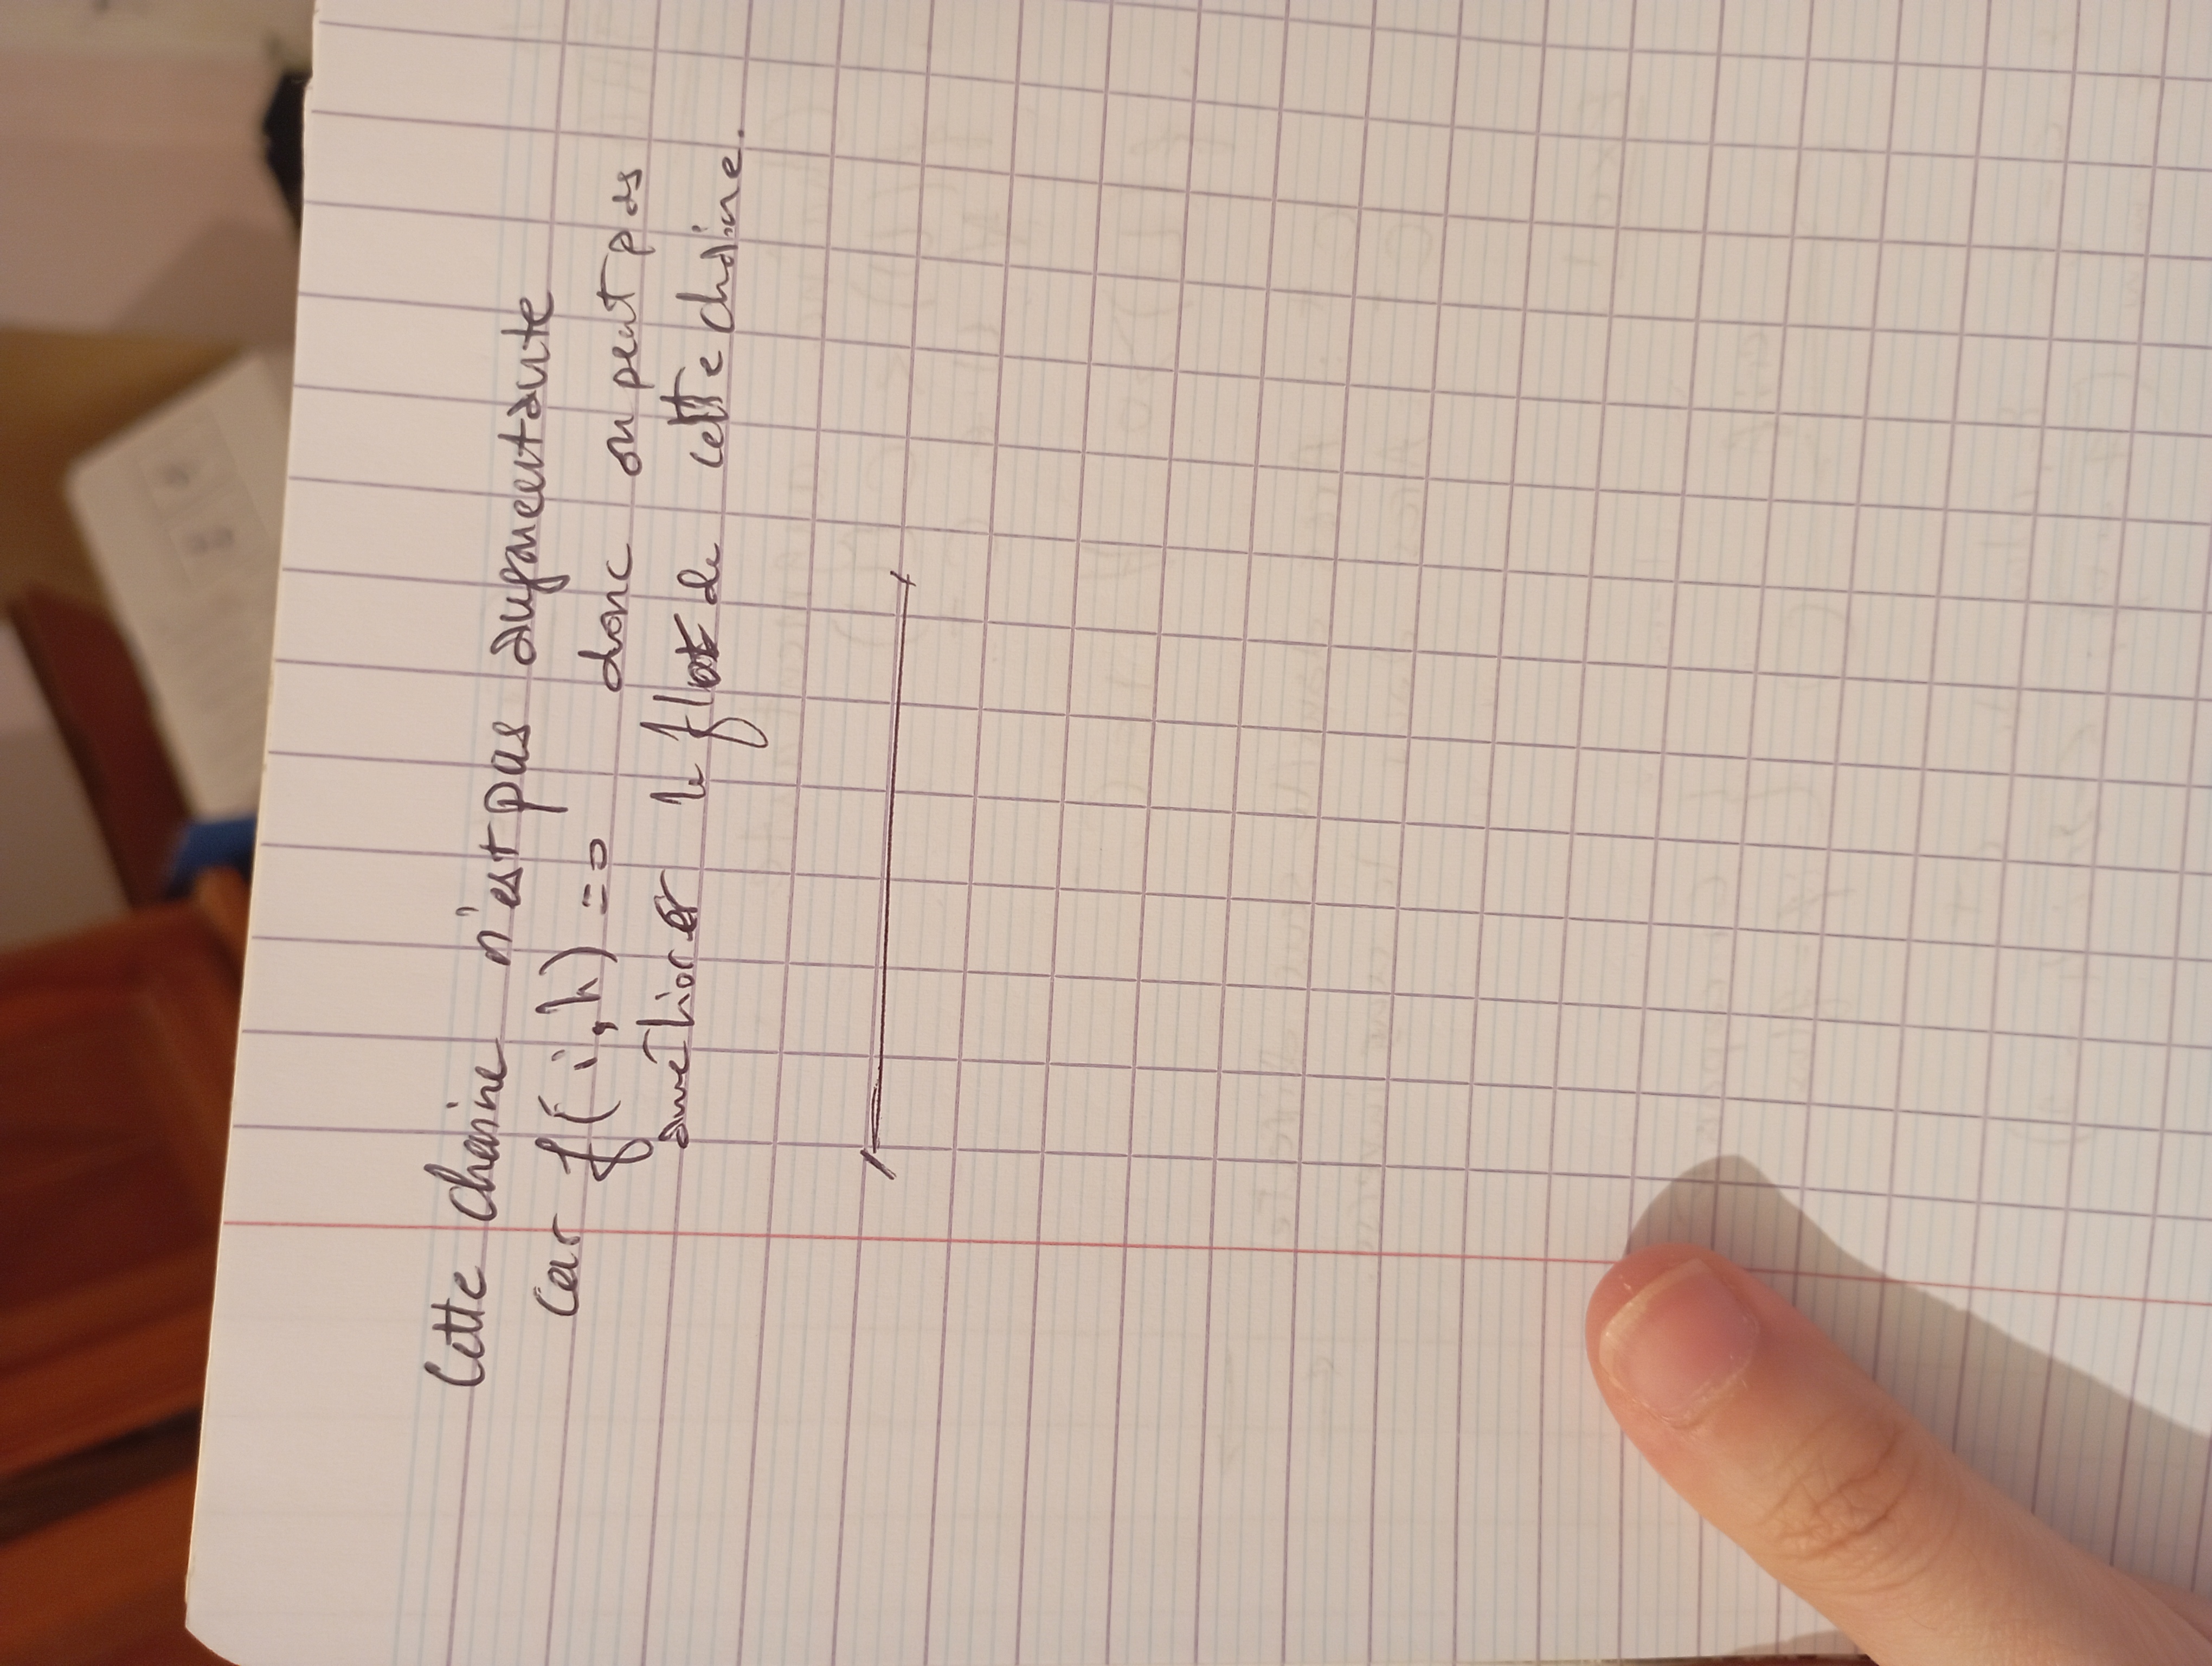 Cette chaine n'est pas augmentante
car f(i,h) = 0 donc on peut pas
améliorer le flot de cette chaine.